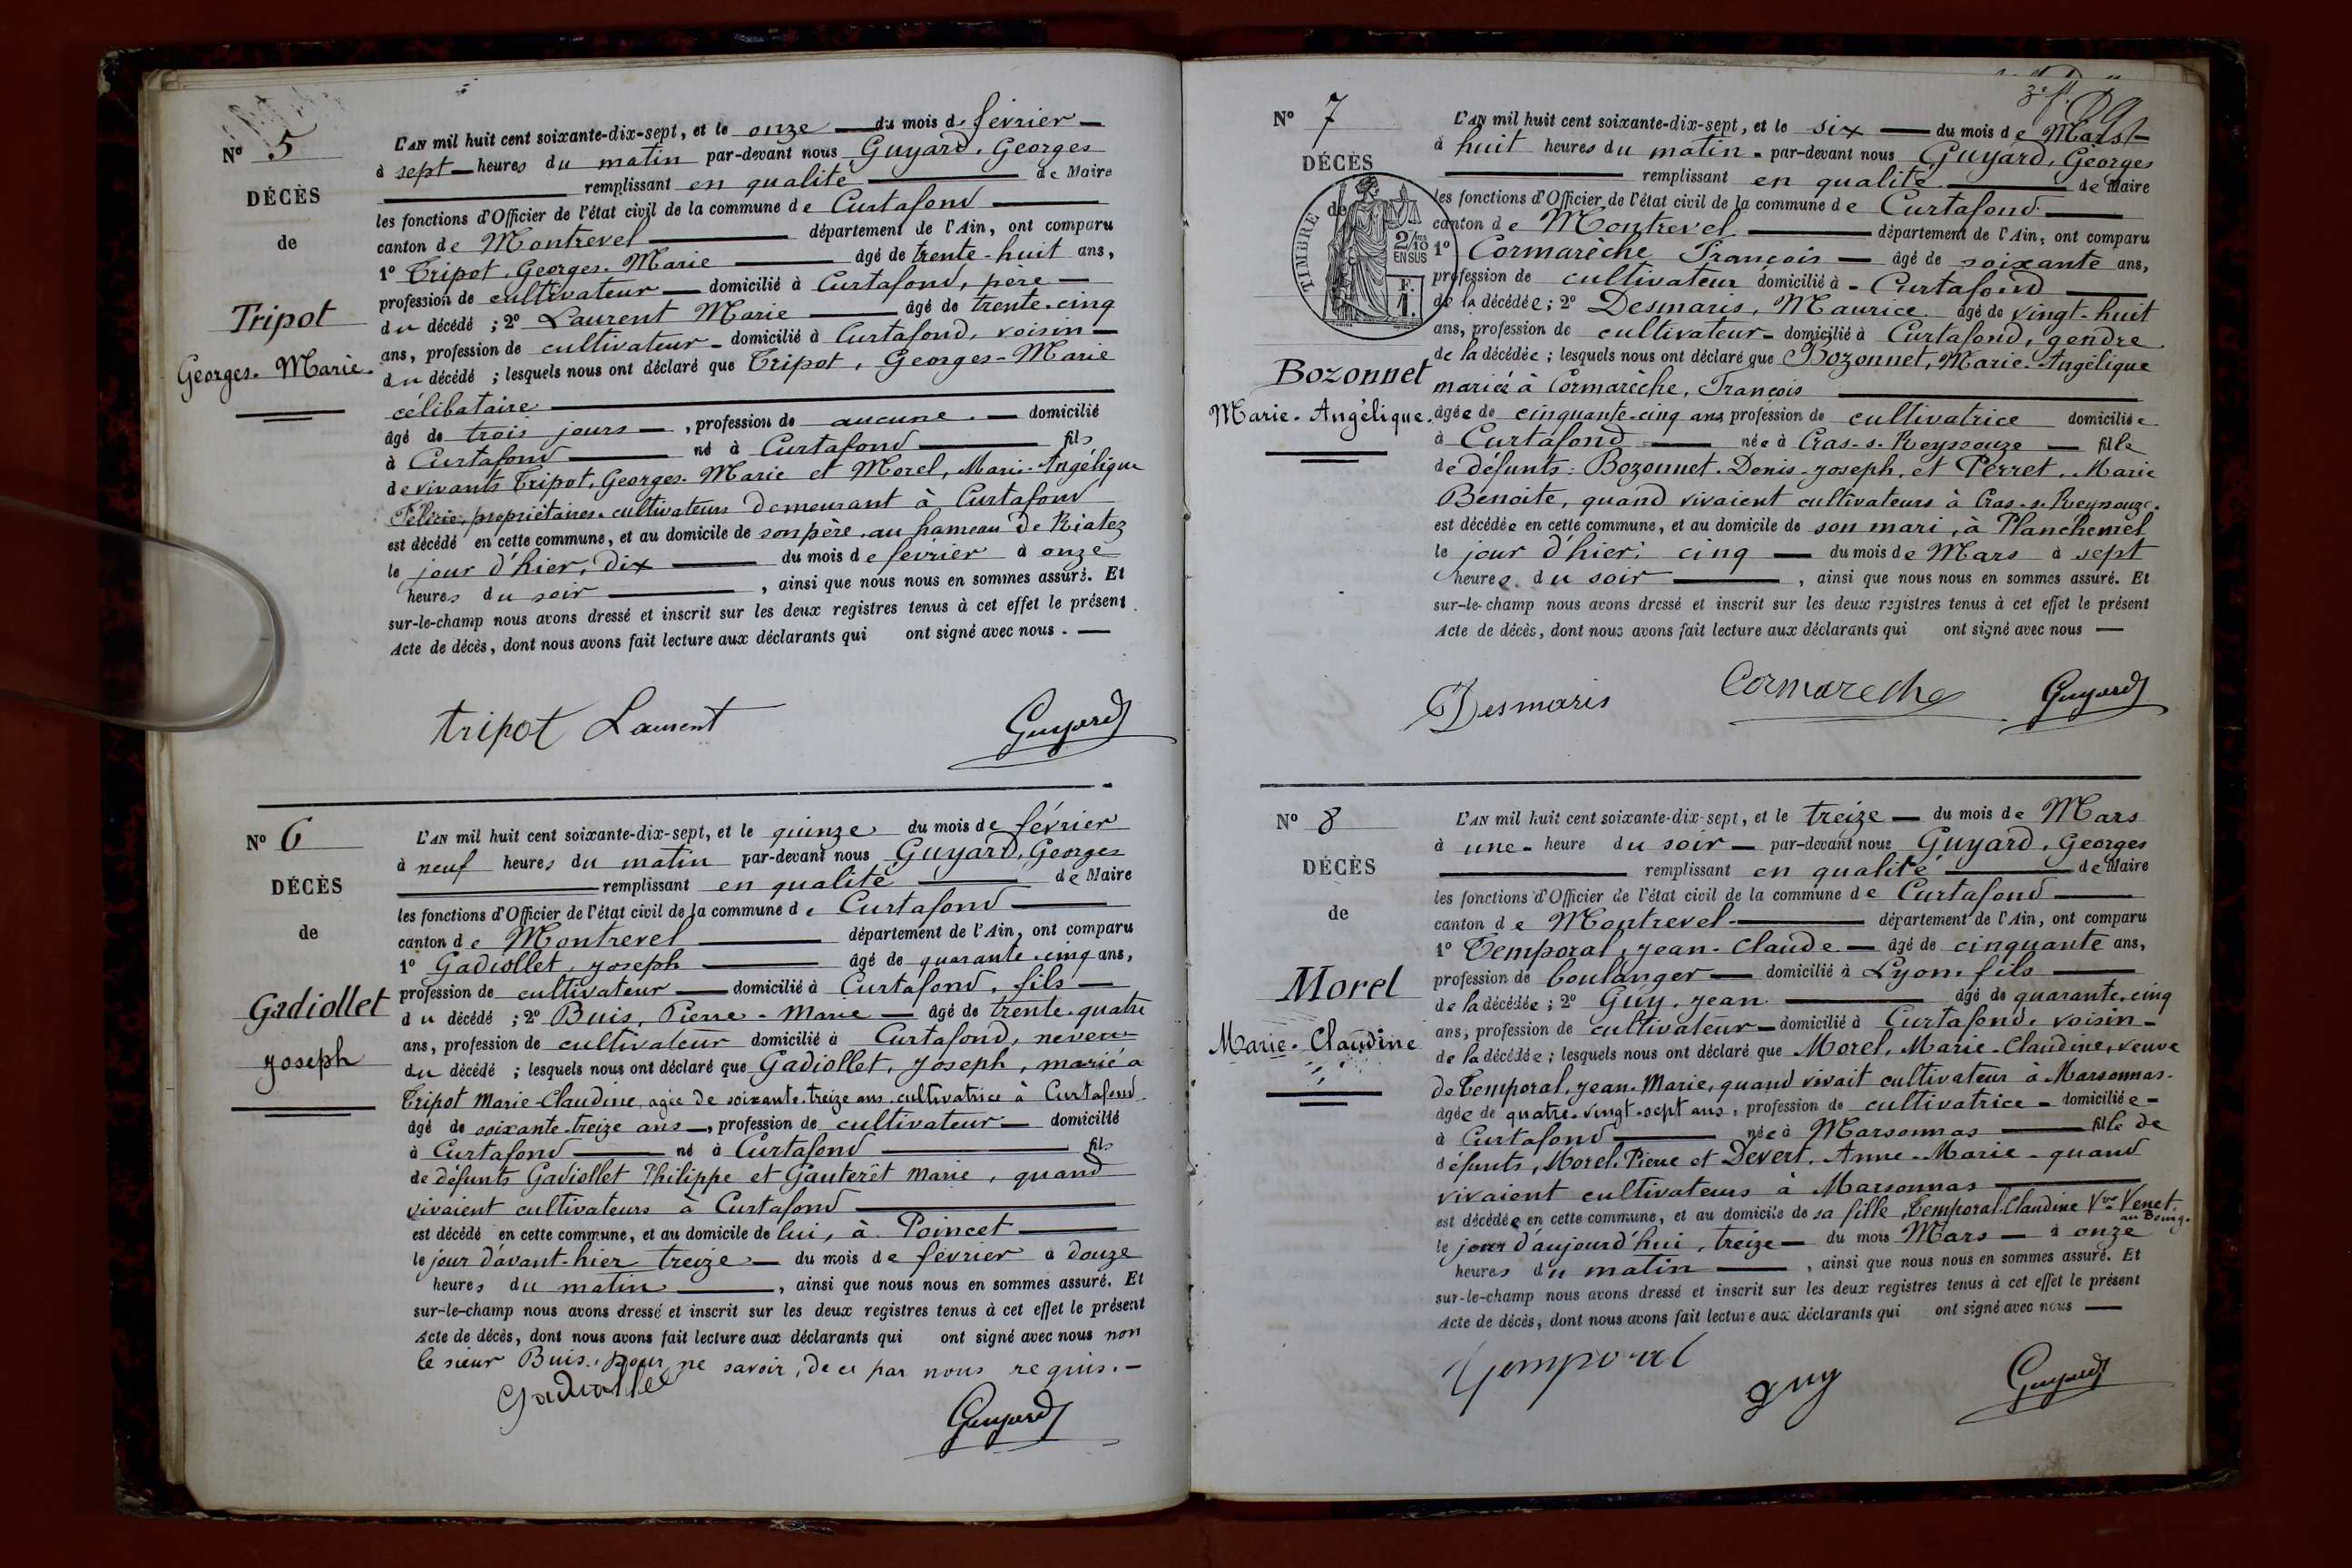 Nº 5
DÉCÈS
de
Tripot
Georges-Marie.
L'AN mil huit cent soixante-dix-sept, et le onze — du mois de février —
à sept — heures du matin par-devant nous Guyard, Georges
remplissant en qualité — de Maire
les fonctions d'Officier de l'état civil de la commune de Curtafond —
canton de Montrevel — département de l'Ain, ont comparu
1º Tripot, Georges-Marie — âgé de trente-huit ans,
profession de cultivateur — domicilié à Curtafond, père —
du décédé ; 2º Laurent Marie — âgé de trente-cinq
ans, profession de cultivateur - domicilié à Curtafond, voisin —
du décédé ; lesquels nous ont déclaré que Tripot, Georges-Marie
célibataire —
âgé de trois jours —, profession de aucune. — domicilié
à Curtafond — né à Curtafond — fils
de vivants Tripot, Georges-Marie et Morel, Marie-Angélique
Félicie, propriétaires-cultivateurs demeurant à Curtafond
est décédé en cette commune, et au domicile de son père, au hameau de Riatez
le jour d'hier, dix — du mois de février à onze
heures du soir —, ainsi que nous nous en sommes assuré. Et
sur-le-champ nous avons dressé et inscrit sur les deux registres tenus à cet effet le présent
Acte de décès, dont nous avons fait lecture aux déclarants qui ont signé avec nous. —
tripot Laurent Guyard
Nº 6
DÉCÈS
de
Gadiollet
Joseph
L'AN mil huit cent soixante-dix-sept, et le quinze du mois de février
à neuf heures du matin par-devant nous Guyard, Georges
remplissant en qualité — de Maire
les fonctions d'Officier de l'état civil de la commune de Curtafond —
canton de Montrevel — département de l'Ain, ont comparu
1º Gadiollet, Joseph — âgé de quarante-cinq ans,
profession de cultivateur — domicilié à Curtafond, fils —
du décédé ; 2º Buis, Pierre-Marie — âgé de trente-quatre
ans, profession de cultivateur domicilié à Curtafond, neveu
du décédé ; lesquels nous ont déclaré que Gadiollet, Joseph, marié à
Tripot Marie-Claudine, agée de soixante-treize ans cultivatrice à Curtafond
âgé de soixante-treize ans —, profession de cultivateur — domicilié
à Curtafond — né à Curtafond — fils
de défunts Gadiollet Philippe et Gauterêt Marie, quand
vivaient cultivateurs à Curtafond —
est décédé en cette commune, et au domicile de lui, à Poincet —
le jour d'avant-hier treize — du mois de février à douze
heures du matin —, ainsi que nous nous en sommes assuré. Et
sur-le-champ nous avons dressé et inscrit sur les deux registres tenus à cet effet le présent
Acte de décès, dont nous avons fait lecture aux déclarants qui ont signé avec nous non
le sieur Buis, pour ne savoir, de ce par nous requis. —
Gadiollet
Guyard
Nº 7
DÉCÈS
de
TIMBRE
2/10 EN SUS
F. 1.
Bozonnet
Marie-Angélique.
L'AN mil huit cent soixante-dix-sept, et le six — du mois de Mars —
à huit heures du matin - par-devant nous Guyard, Georges
remplissant en qualité — de Maire
les fonctions d'Officier de l'état civil de la commune de Curtafond —
canton de Montrevel — département de l'Ain, ont comparu
1º Cormarèche François — âgé de soixante ans,
profession de cultivateur domicilié à - Curtafond —
de la décédée ; 2º Desmaris, Maurice âgé de vingt-huit
ans, profession de cultivateur - domicilié à Curtafond, gendre
de la décédée ; lesquels nous ont déclaré que Bozonnet, Marie-Angélique
mariée à Cormarèche, François —
âgée de cinquante-cinq ans, profession de cultivatrice domiciliée
à Curtafond — née à Cras-s-Reyssouze — fille
de défunts : Bozonnet-Denis-Joseph, et Perret, Marie
Benoite, quand vivaient cultivateurs à Cras-s-Reyssouze.
est décédée en cette commune, et au domicile de son mari, à Planchemel
le jour d'hier, cinq — du mois de Mars à sept
heures du soir —, ainsi que nous nous en sommes assuré. Et
sur-le-champ nous avons dressé et inscrit sur les deux registres tenus à cet effet le présent
Acte de décès, dont nous avons fait lecture aux déclarants qui ont signé avec nous —
Desmaris Cormareche Guyard
Nº 8
DÉCÈS
de
Morel
Marie-Claudine
L'AN mil huit cent soixante-dix-sept, et le treize — du mois de Mars
à une - heure du soir — par-devant nous Guyard, Georges
remplissant en qualité — de Maire
les fonctions d'Officier de l'état civil de la commune de Curtafond —
canton de Montrevel — département de l'Ain, ont comparu
1º Temporal, Jean-Claude — âgé de cinquante ans,
profession de boulanger — domicilié à Lyon, fils —
de la décédée ; 2º Guy, Jean — âgé de quarante-cinq
ans, profession de cultivateur — domicilié à Curtafond, voisin -
de la décédée ; lesquels nous ont déclaré que Morel, Marie-Claudine, veuve
de Temporal, Jean-Marie, quand vivait cultivateur à Marsonnas.
âgée de quatre-vingt-sept ans, profession de cultivatrice - domiciliée -
à Curtafond — née à Marsonnas — fille de
défunts, Morel, Pierre et Devert, Anne-Marie - quand
vivaient cultivateurs à Marsonnas —
est décédée en cette commune, et au domicile de sa fille, Temporal-Claudine Vve Venet, au Bourg.
le jour d'aujourd'hui, treize — du mois Mars — à onze
heures du matin —, ainsi que nous nous en sommes assuré. Et
sur-le-champ nous avons dressé et inscrit sur les deux registres tenus à cet effet le présent
Acte de décès, dont nous avons fait lecture aux déclarants qui ont signé avec nous —
Temporal guy Guyard